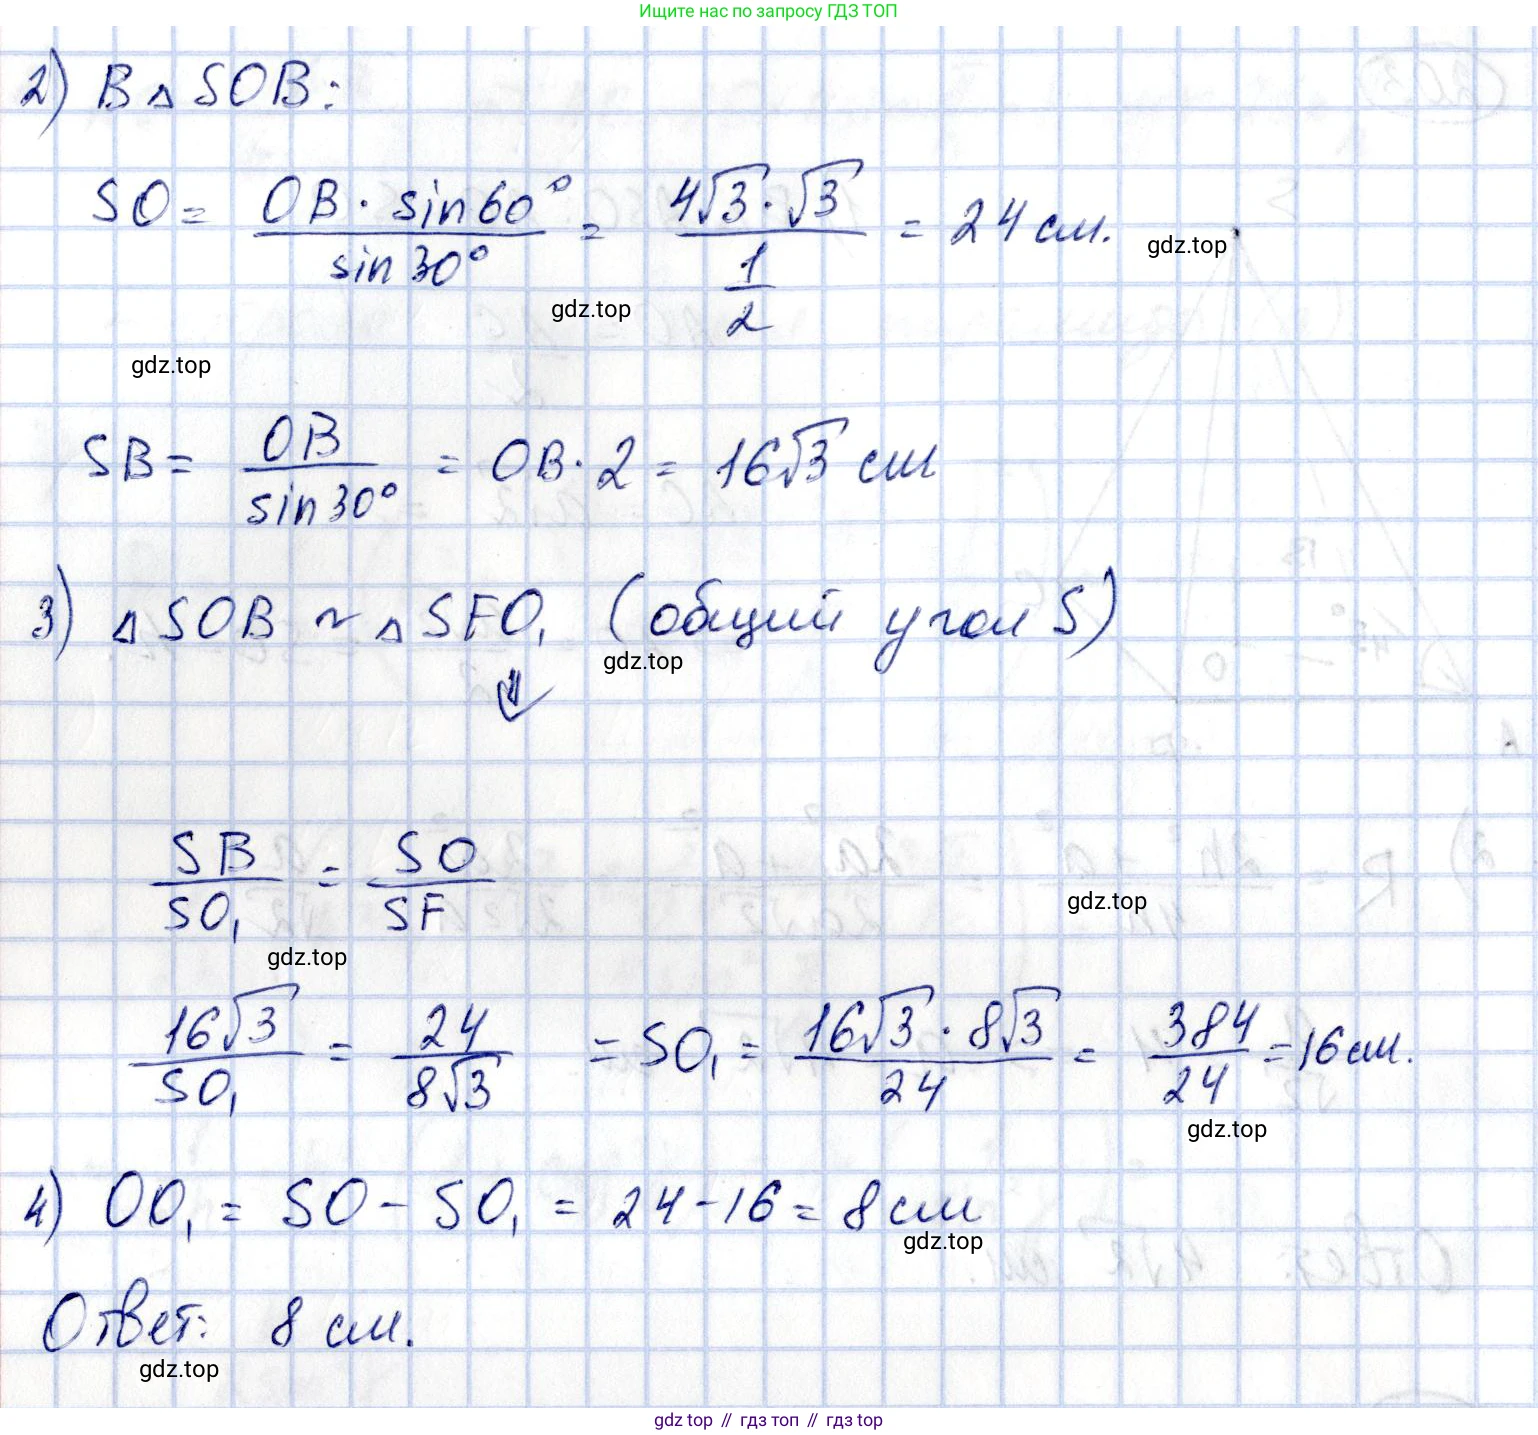 Ищите нас по запросу ГДЗ ТОП
2) В △ SOB:
SO = OB · sin60° / sin30° = 4√3 · √3 / 1/2 = 24 см.
gdz.top
gdz.top
gdz.top
SB = OB / sin30° = OB · 2 = 16√3 см
3) △ SOB ~ △ SFO₁ (общий угол S)
gdz.top
⇓
SB / SO₁ = SO / SF
gdz.top
gdz.top
16√3 / SO₁ = 24 / 8√3 = SO₁ = 16√3 · 8√3 / 24 = 384 / 24 = 16 см.
gdz.top
4) OO₁ = SO - SO₁ = 24 - 16 = 8 см
gdz.top
Ответ: 8 см.
gdz.top
gdz top // гдз топ // гдз top